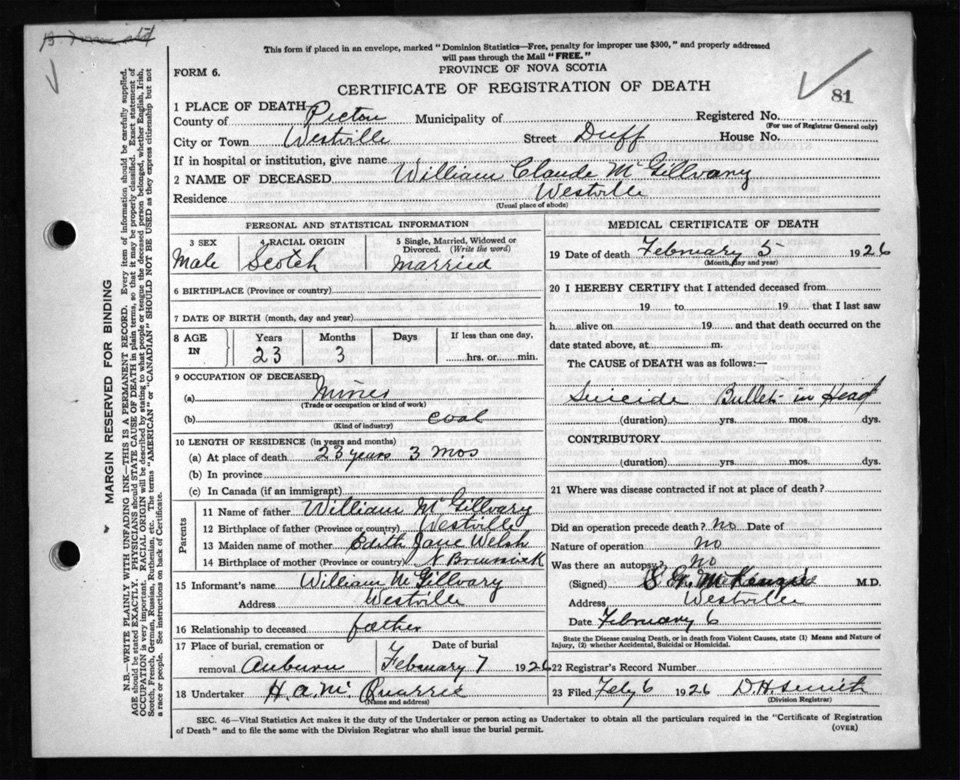 This form if placed in an envelope, marked "Dominion Statistics—Free, penalty for improper use $300," and properly addressed
will pass through the Mail "FREE."
PROVINCE OF NOVA SCOTIA
FORM 6.
CERTIFICATE OF REGISTRATION OF DEATH
81
1 PLACE OF DEATH
County of Pictou Municipality of Registered No.
(For use of Registrar General only)
City or Town Westville Street Duff House No.
If in hospital or institution, give name
2 NAME OF DECEASED William Claude McGillvary
Residence Westville
(Usual place of abode)
PERSONAL AND STATISTICAL INFORMATION
3 SEX 4 RACIAL ORIGIN 5 Single, Married, Widowed or
Divorced. (Write the word)
Male Scotch Married
6 BIRTHPLACE (Province or country)
7 DATE OF BIRTH (month, day and year)
8 AGE IN Years Months Days If less than one day,
23 3 hrs. or min.
9 OCCUPATION OF DECEASED
(a) Miner
(Trade or occupation or kind of work)
(b) coal
(Kind of industry)
10 LENGTH OF RESIDENCE (in years and months)
(a) At place of death 23 years 3 mos
(b) In province
(c) In Canada (if an immigrant)
Parents
11 Name of father William McGillvary
12 Birthplace of father (Province or country) Westville
13 Maiden name of mother Edith Jane Welsh
14 Birthplace of mother (Province or country) N Brunswick
15 Informant's name William McGillvary
Address Westville
16 Relationship to deceased father
17 Place of burial, cremation or Date of burial
removal Auburn February 7 1926
18 Undertaker H. A. McQuarrie
(Name and address)
MEDICAL CERTIFICATE OF DEATH
19 Date of death February 5 1926
(Month, day and year)
20 I HEREBY CERTIFY that I attended deceased from
19 to 19 that I last saw
h alive on 19 and that death occurred on the
date stated above, at m.
The CAUSE of DEATH was as follows:
Suicide Bullet in Head
(duration) yrs. mos. dys.
CONTRIBUTORY
(duration) yrs. mos. dys.
21 Where was disease contracted if not at place of death?
Did an operation precede death? no Date of
Nature of operation no
Was there an autopsy? no
(Signed) McKenzie M.D.
Address Westville
Date February 6
State the Disease causing Death, or in death from Violent Causes, state (1) Means and Nature of
Injury, (2) whether Accidental, Suicidal or Homicidal.
22 Registrar's Record Number
23 Filed Feby 6 1926 D. H. Smith
(Division Registrar)
SEC. 46—Vital Statistics Act makes it the duty of the Undertaker or person acting as Undertaker to obtain all the particulars required in the "Certificate of Registration
of Death" and to file the same with the Division Registrar who shall issue the burial permit.
(OVER)
MARGIN RESERVED FOR BINDING
N.B.—WRITE PLAINLY WITH UNFADING INK—THIS IS A PERMANENT RECORD. Every item of information should be carefully supplied.
AGE should be stated EXACTLY. PHYSICIANS should STATE CAUSE OF DEATH in plain terms, so that it may be properly classified. Exact statement of
OCCUPATION is very important. RACIAL ORIGIN will be described by stating to what people or tongue the deceased person belonged, whether English, Irish,
Scotch, French, German, Russian, Ruthenian, etc. The terms "AMERICAN" or "CANADIAN" SHOULD NOT BE USED as they express citizenship but not
a race or people. See instructions on back of Certificate.